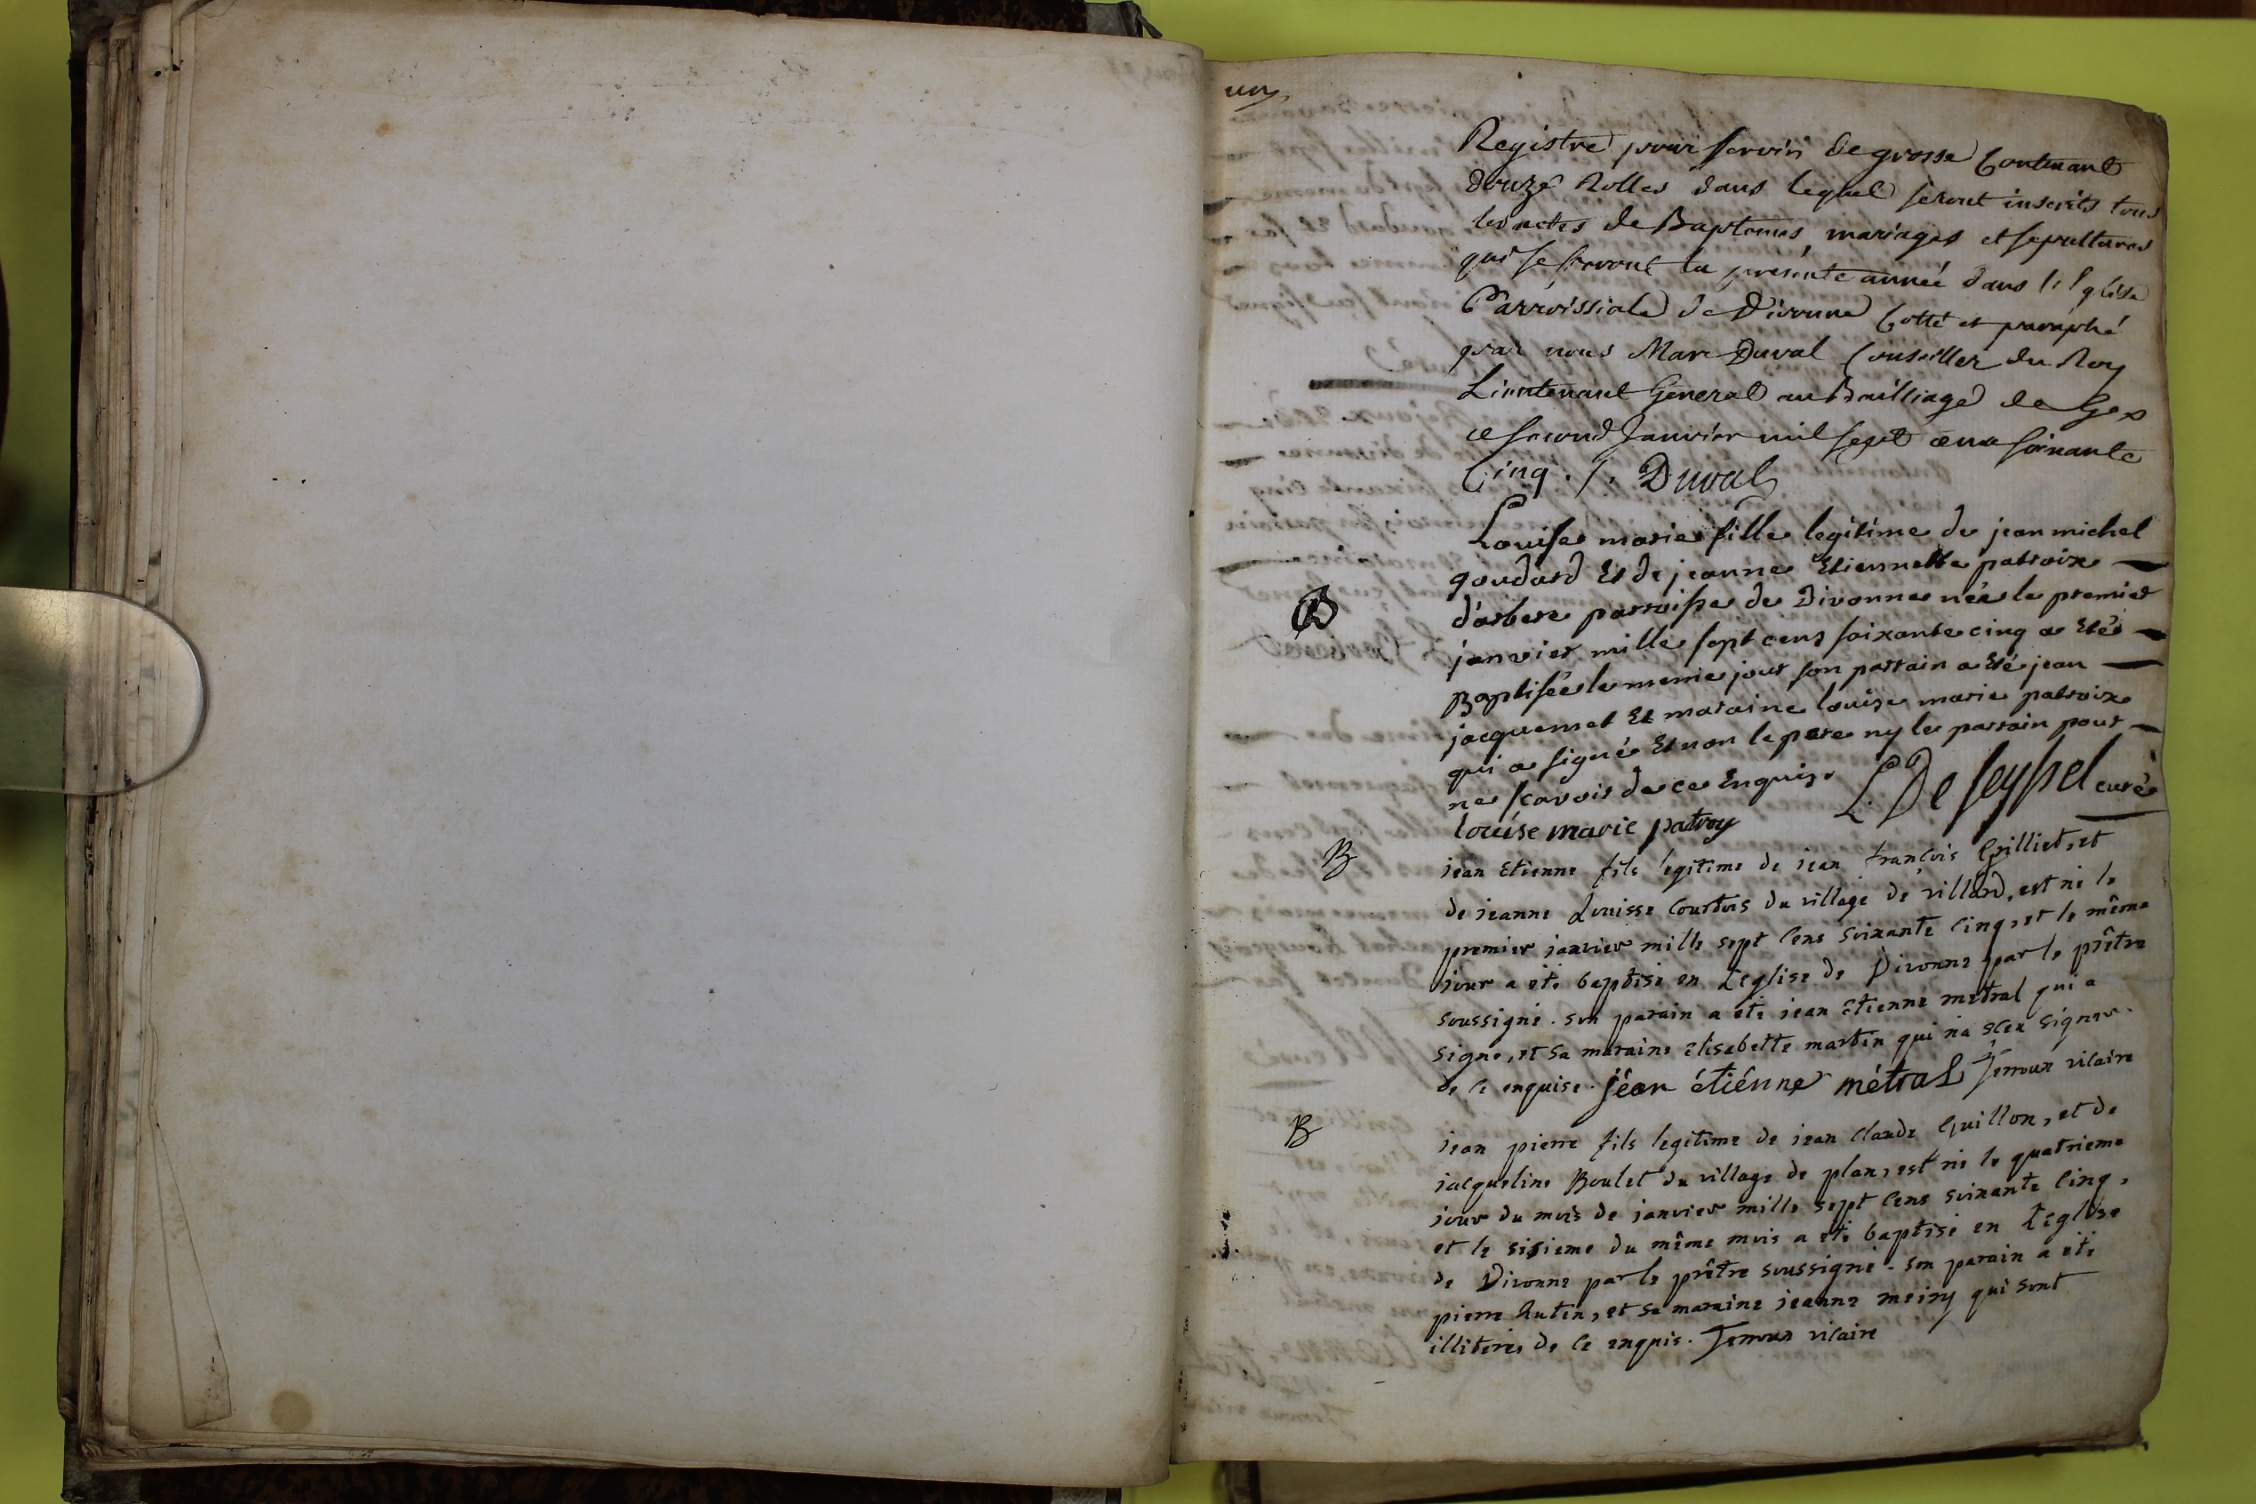 Registre pour servir de grosse Contenant
douze Rolles dans lequel seront inscrits tous
les actes de Baptemes, mariages et sepultures
qui se feront la presente année dans l'Eglise
Parroissiale de Divonne Cotté et paraphé
par nous Marc Duval Conseiller du Roy
Lieutenant General au Bailliage de Gex
ce second Janvier mil sept cens soixante
Cinq. Duval
Louise marie fille legitime de jean michel
goudard Et de jeanne Etiennette patroix
B d'arbere parroisse de Divonne née le premier
janvier mille sept cens soixante cinq a Eté
Baptisée le meme jour son parrain a Eté jean
jacquemet Et maraine louise marie patroix
qui a signé Et non le pere ny le parrain pour
ne scavoir de ce Enquis. L. De seyssel curé
louise marie patroy
B jean Etienne fils legitime de jean francois Gilliet, et
de jeanne Louisse Courtois du village de villard, est né le
premier janvier mille sept cens soixante cinq, et le même
jour a été baptisé en L'eglise de Divonne par le prêtre
soussigné. son parain a eté jean etienne metral qui a
signe, et sa maraine elisabette martin qui n'a sceu signer
de ce enquise. jêan étiénne métral Jemoux vicaire
B jean pierre fils legitime de jean claude Guillon, et de
jacqueline Boulet du village de plan, est né le quatrieme
jour du mois de janvier mille sept cens soixante cinq,
et le sisieme du même mois a eté baptisé en L'eglise
de Divonne par le prêtre soussigné. son parain a eté
pierre Autin, et sa maraine jeanne meiry qui sont
illiterés de ce enquis. Jemoux vicaire